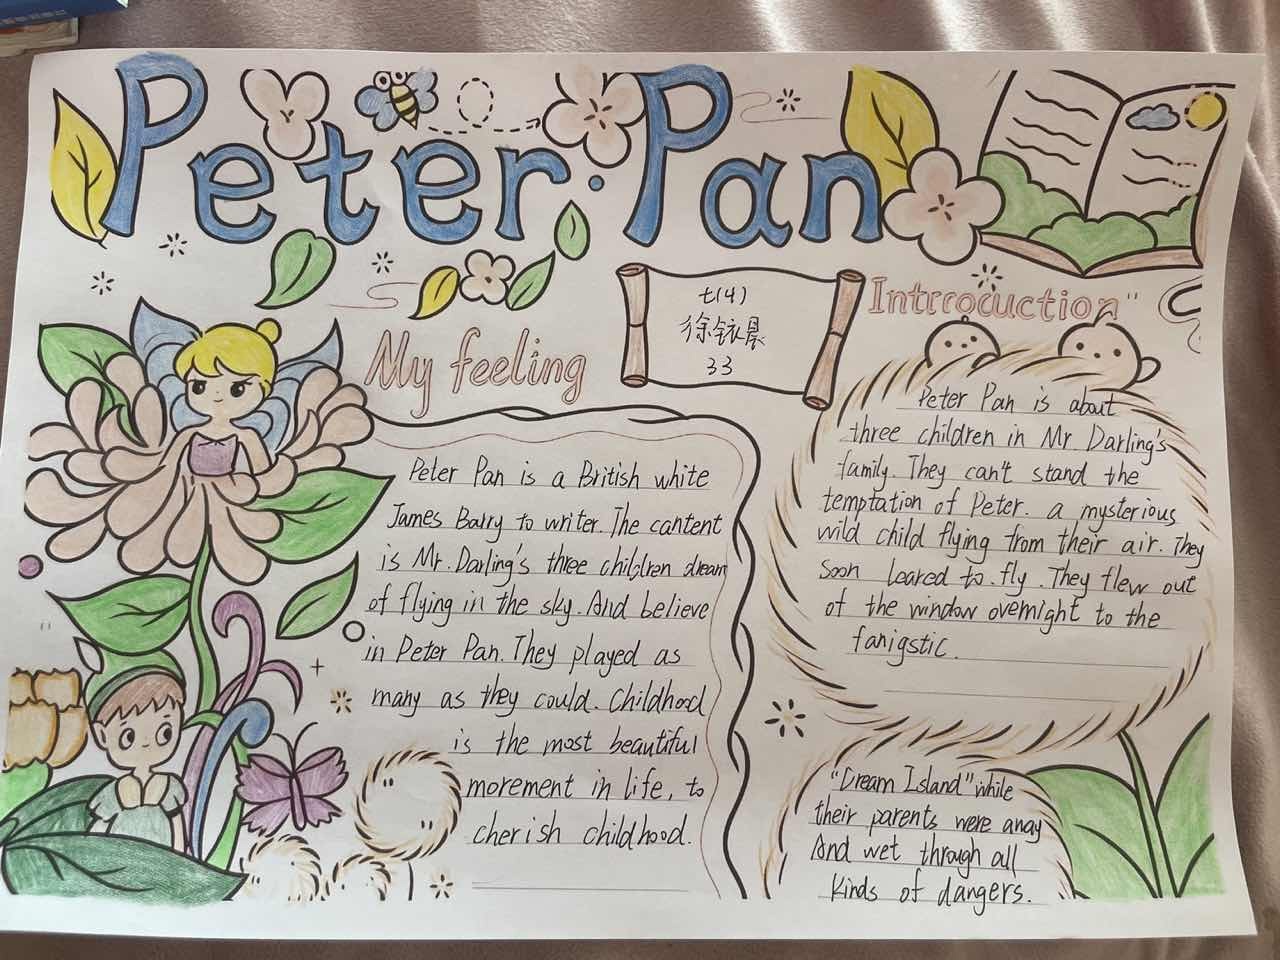 Peter·Pan
七(4)
徐铱晨
33
Introcuction"
My feeling
Peter Pan is a British white
James Barry to writer. The cantent
is Mr. Darling's three children dream
of flying in the sky. And believe
in Peter Pan. They played as
many as they could. Childhood
is the most beautiful
morement in life, to
cherish childhood.
Peter Pan is about
three children in Mr. Darling's
family. They can't stand the
temptation of Peter. a mysterious
wild child flying from their air. They
soon leared to fly. They flew out
of the window overnight to the
fanigstic.
"Dream Island" while
their parents were anay
And wet through all
kinds of dangers.